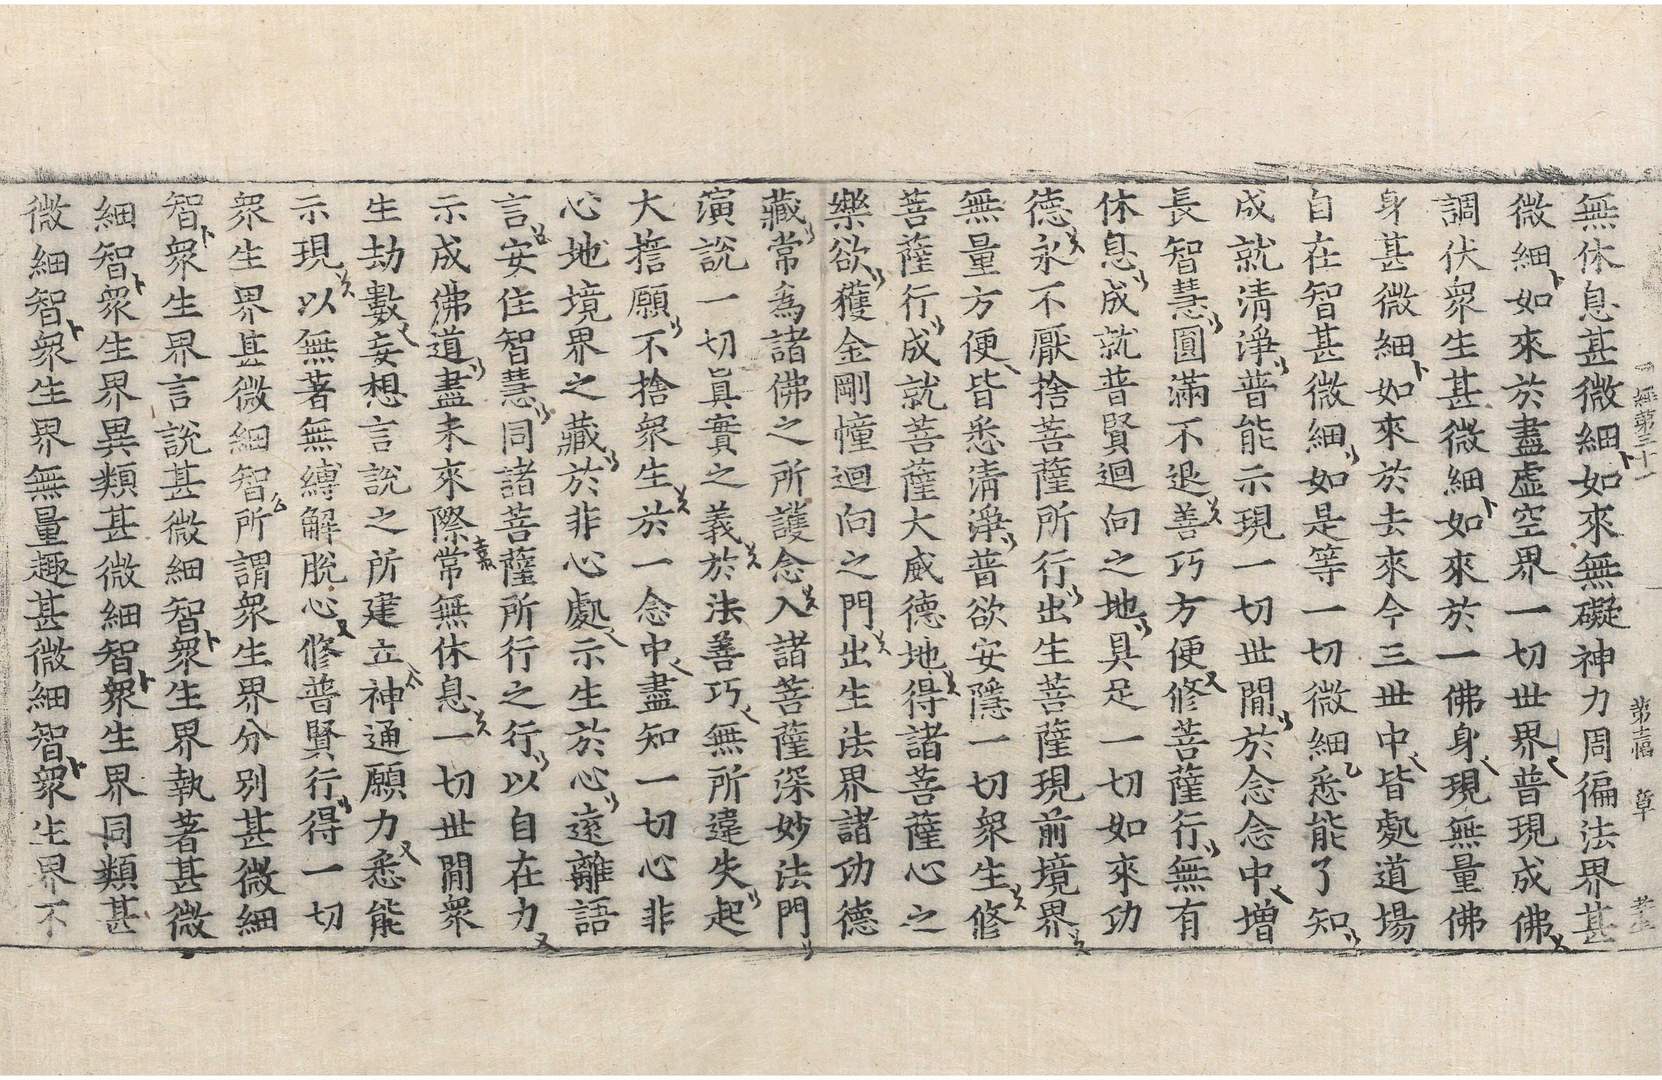 經第三十一 第十二幅 章
無休息甚微細如來無礙神力周徧法界甚
微細如來於盡虛空界一切世界普現成佛
調伏眾生甚微細如來於一佛身現無量佛
身甚微細如來於去來今三世中皆處道場
自在智甚微細如是等一切微細悉能了知
成就清淨普能示現一切世間於念念中增
長智慧圓滿不退善巧方便修菩薩行無有
休息成就普賢迴向之地具足一切如來功
德永不厭捨菩薩所行出生菩薩現前境界
無量方便皆悉清淨普欲安隱一切眾生修
菩薩行成就菩薩大威德地得諸菩薩心之
樂欲獲金剛幢迴向之門出生法界諸功德
藏常為諸佛之所護念入諸菩薩深妙法門
演說一切真實之義於法善巧無所違失起
大誓願不捨眾生於一念中盡知一切心非
心地境界之藏於非心處示生於心遠離語
言安住智慧同諸菩薩所行之行以自在力
示成佛道盡未來際常無休息一切世間眾
生劫數妄想言說之所建立神通願力悉能
示現以無著無縛解脫心修普賢行得一切
眾生界甚微細智所謂眾生界分別甚微細
智眾生界言說甚微細智眾生界執著甚微
細智眾生界異類甚微細智眾生界同類甚
微細智眾生界無量趣甚微細智眾生界不